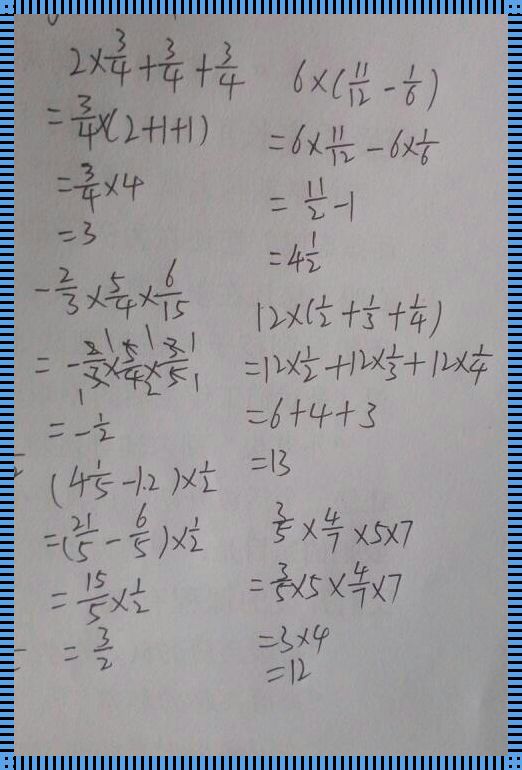 2×3/4+3/4+3/4
=3/4×(2+1+1)
=3/4×4
=3
-2/3×5/4×6/15
=-2/3×5/4×3/5
=-1/2
(4 1/5-1.2)×1/2
=(21/5-6/5)×1/2
=15/5×1/2
=3/2
6×(11/12-1/6)
=6×11/12-6×1/6
=11/2-1
=4 1/2
12×(1/2+1/3+1/4)
=12×1/2+12×1/3+12×1/4
=6+4+3
=13
3/5×4/7×5×7
=3/5×5×4/7×7
=3×4
=12